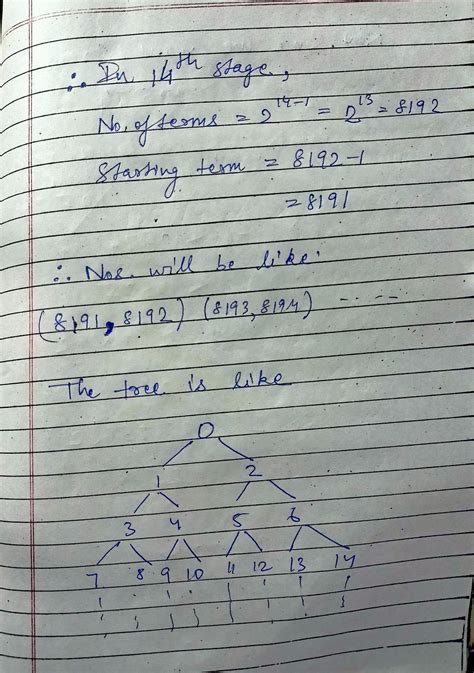 ∴ In 14th stage,
No. of terms = 2^14-1 = 2^13 = 8192
Starting term = 8192-1
= 8191
∴ Nos. will be like:
(8191, 8192) (8193, 8194) ----
The tree is like
0
1 2
3 4 5 6
7 8 9 10 11 12 13 14